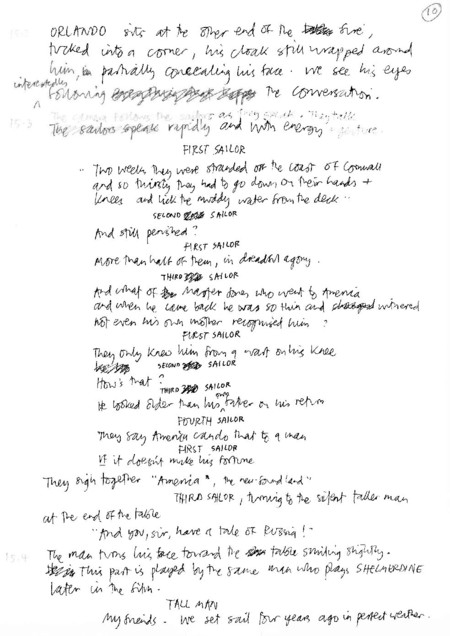 10
ORLANDO sits at the other end of the fire,
tucked into a corner, his cloak still wrapped around
him, partially concealing his face. We see his eyes
interestedly
following the conversation.
15.3
The sailors speak rapidly and with energy
FIRST SAILOR
"Two weeks they were stranded off the coast of Cornwall
and so thirsty they had to go down on their hands +
knees and lick the muddy water from the deck"
SECOND SAILOR
And still perished?
FIRST SAILOR
More than half of them, in dreadful agony.
THIRD SAILOR
And what of Master Jones who went to America
and when he came back he was so thin and withered
not even his own mother recognised him?
FIRST SAILOR
They only knew him from a wart on his knee
SECOND SAILOR
How's that?
THIRD SAILOR
He looked older than his own
father on his return
FOURTH SAILOR
They say America can do that to a man
FIRST SAILOR
If it doesn't make his fortune
They sigh together "America", the new-found land"
THIRD SAILOR, turning to the silent taller man
at the end of the table
"And you, sir, have a tale of Russia!"
15.4
The man turns his face toward the table smiling slightly.
This part is played by the same man who plays SHELMERDINE
later in the film.
TALL MAN
My friends. We set sail four years ago in perfect weather.